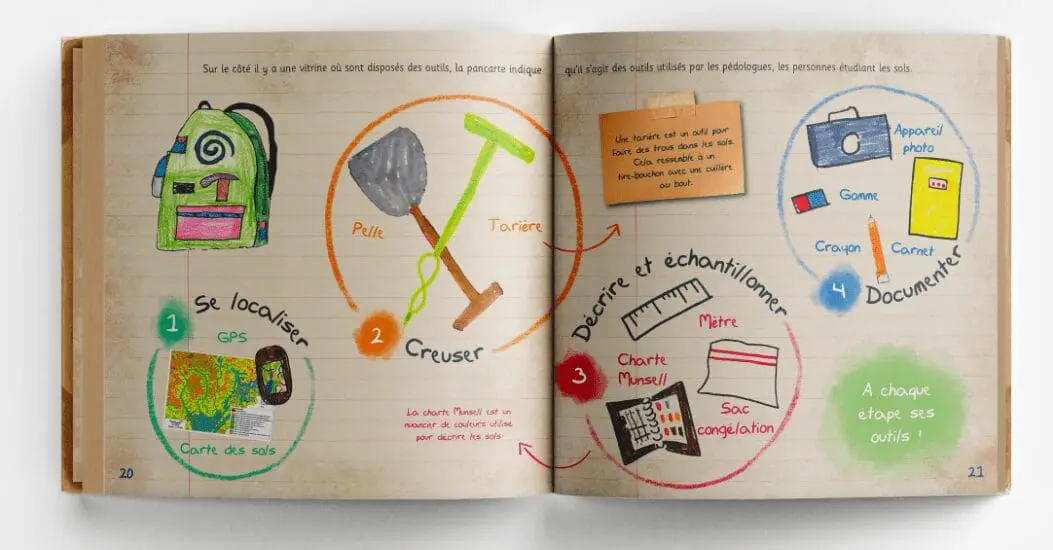 Sur le côté il y a une vitrine où sont disposés des outils, la pancarte indique qu'il s'agit des outils utilisés par les pédologues, les personnes étudiant les sols.
1
Se localiser
GPS
Carte des sols
2
Creuser
Pelle
Tarière
Une tarière est un outil pour
faire des trous dans les sols.
Cela ressemble à un
tire-bouchon avec une cuillère
au bout.
La charte Munsell est un
nuancier de couleurs utilisé
pour décrire les sols
3
Décrire et échantillonner
Mètre
Charte
Munsell
Sac
congélation
4
Documenter
Appareil
photo
Gomme
Crayon
Carnet
A chaque
étape ses
outils !
20
21